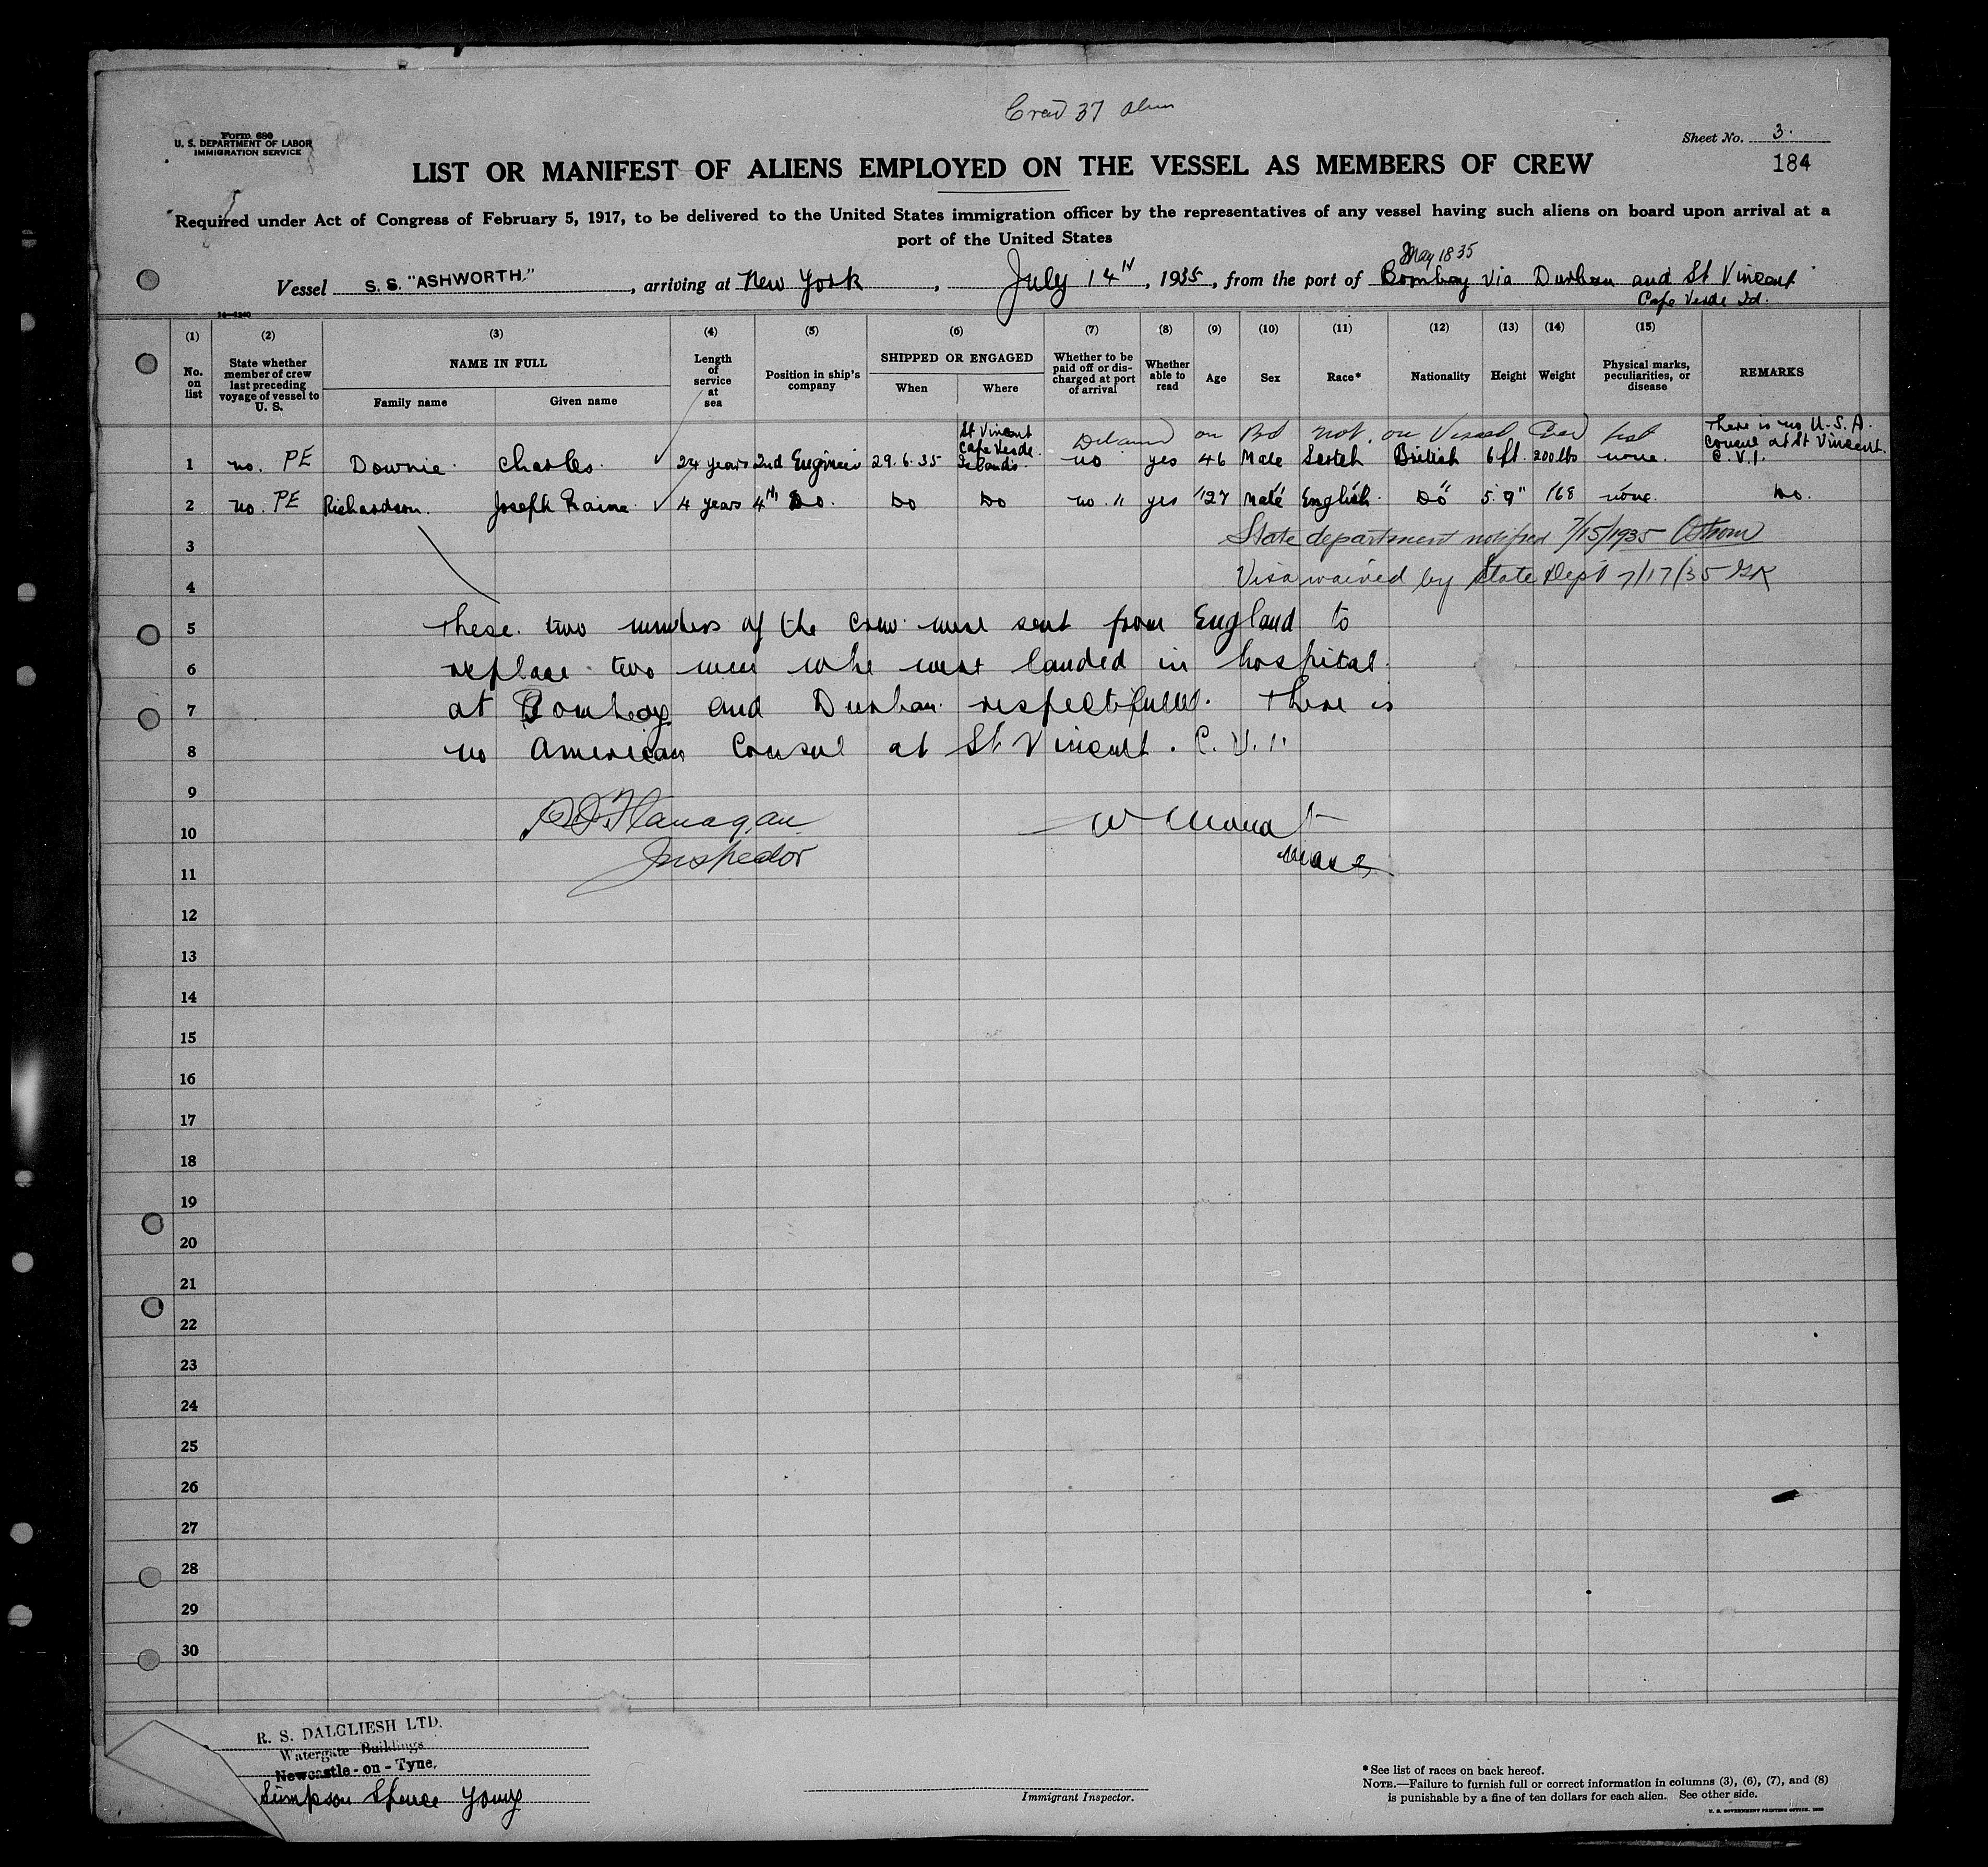 Crew 37 Alien
Form 680
U. S. DEPARTMENT OF LABOR
IMMIGRATION SERVICE
Sheet No. 3.
184
LIST OR MANIFEST OF ALIENS EMPLOYED ON THE VESSEL AS MEMBERS OF CREW
Required under Act of Congress of February 5, 1917, to be delivered to the United States immigration officer by the representatives of any vessel having such aliens on board upon arrival at a
port of the United States
May 18 35
Vessel S. S. "ASHWORTH." , arriving at New York , July 14th, 1935, from the port of Bombay via Durban and St Vincent
Cape Verde Id.
14-1240
(1) (2) (3) (4) (5) (6) (7) (8) (9) (10) (11) (12) (13) (14) (15)
No. on list
State whether member of crew last preceding voyage of vessel to U. S.
NAME IN FULL
Family name Given name
Length of service at sea
Position in ship's company
SHIPPED OR ENGAGED
When Where
Whether to be paid off or discharged at port of arrival
Whether able to read
Age
Sex
Race*
Nationality
Height
Weight
Physical marks, peculiarities, or disease
REMARKS
on Bd not on Vessel
1 no. PE Downie. Charles. 24 years 2nd Engineer 29.6.35 St Vincent Cape Verde Islands. no yes 46 Male Scotch British 6 ft. 200 lbs none. There is no U.S.A. Consul at St Vincent. C.V.I.
2 no. PE Richardson. Joseph Raine. 4 years 4th Do. Do Do no. " yes 27 Male English. Do 5.9" 168 none. Do.
3 State department notified 7/15/1935
4 Visa waived by State Dept 7/17/35
5 These two members of the crew were sent from England to
6 replace two men who were landed in hospital
7 at Bombay and Durban respectfully. There is
8 no American Consul at St. Vincent. C.V.I.
9
10 Flanagan
Inspector
11
12
13
14
15
16
17
18
19
20
21
22
23
24
25
26
27
28
29
30
R. S. DALGLIESH LTD.
Watergate Buildings
Newcastle-on-Tyne,
Simpson Spence Young
Immigrant Inspector.
*See list of races on back hereof.
NOTE.—Failure to furnish full or correct information in columns (3), (6), (7), and (8)
is punishable by a fine of ten dollars for each alien. See other side.